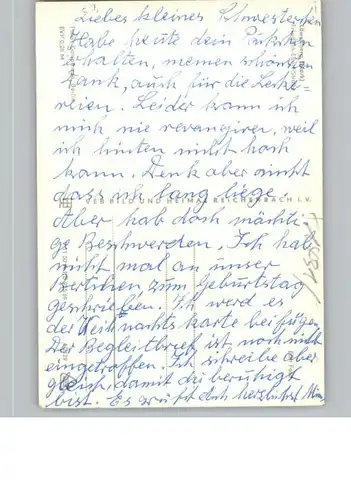 Liebes kleines Schwesterchen
Habe heute dein Päckchen
halten, meinen schönsten
Dank, auch für die Lecke=
reien. Leider kann ich
mich nie revangiren, weil
ich hinten nicht hoch
kann. Denk aber nicht
dass ich lang liege.
VEB BILD UND HEIMAT REICHENBACH I. V.
Aber hab doch mächti
ge Beschwerden. Ich hab
nicht mal an unser
zum Geburtstag
geschrieben. Ich werd es
der Weihnachtskarte beifügen.
Der Begleitbrief ist noch nicht
eingetroffen. Ich schreibe aber
gleich, damit du beruhigt
bist. Es grüßt dich herzlichst